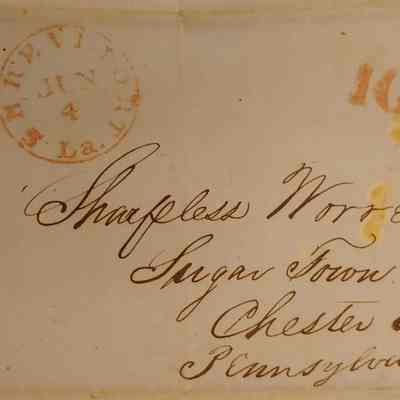 SHREVEPORT
JUN
4
La.
10
Sharpless Worr
Sugar Town
Chester
Pennsylva